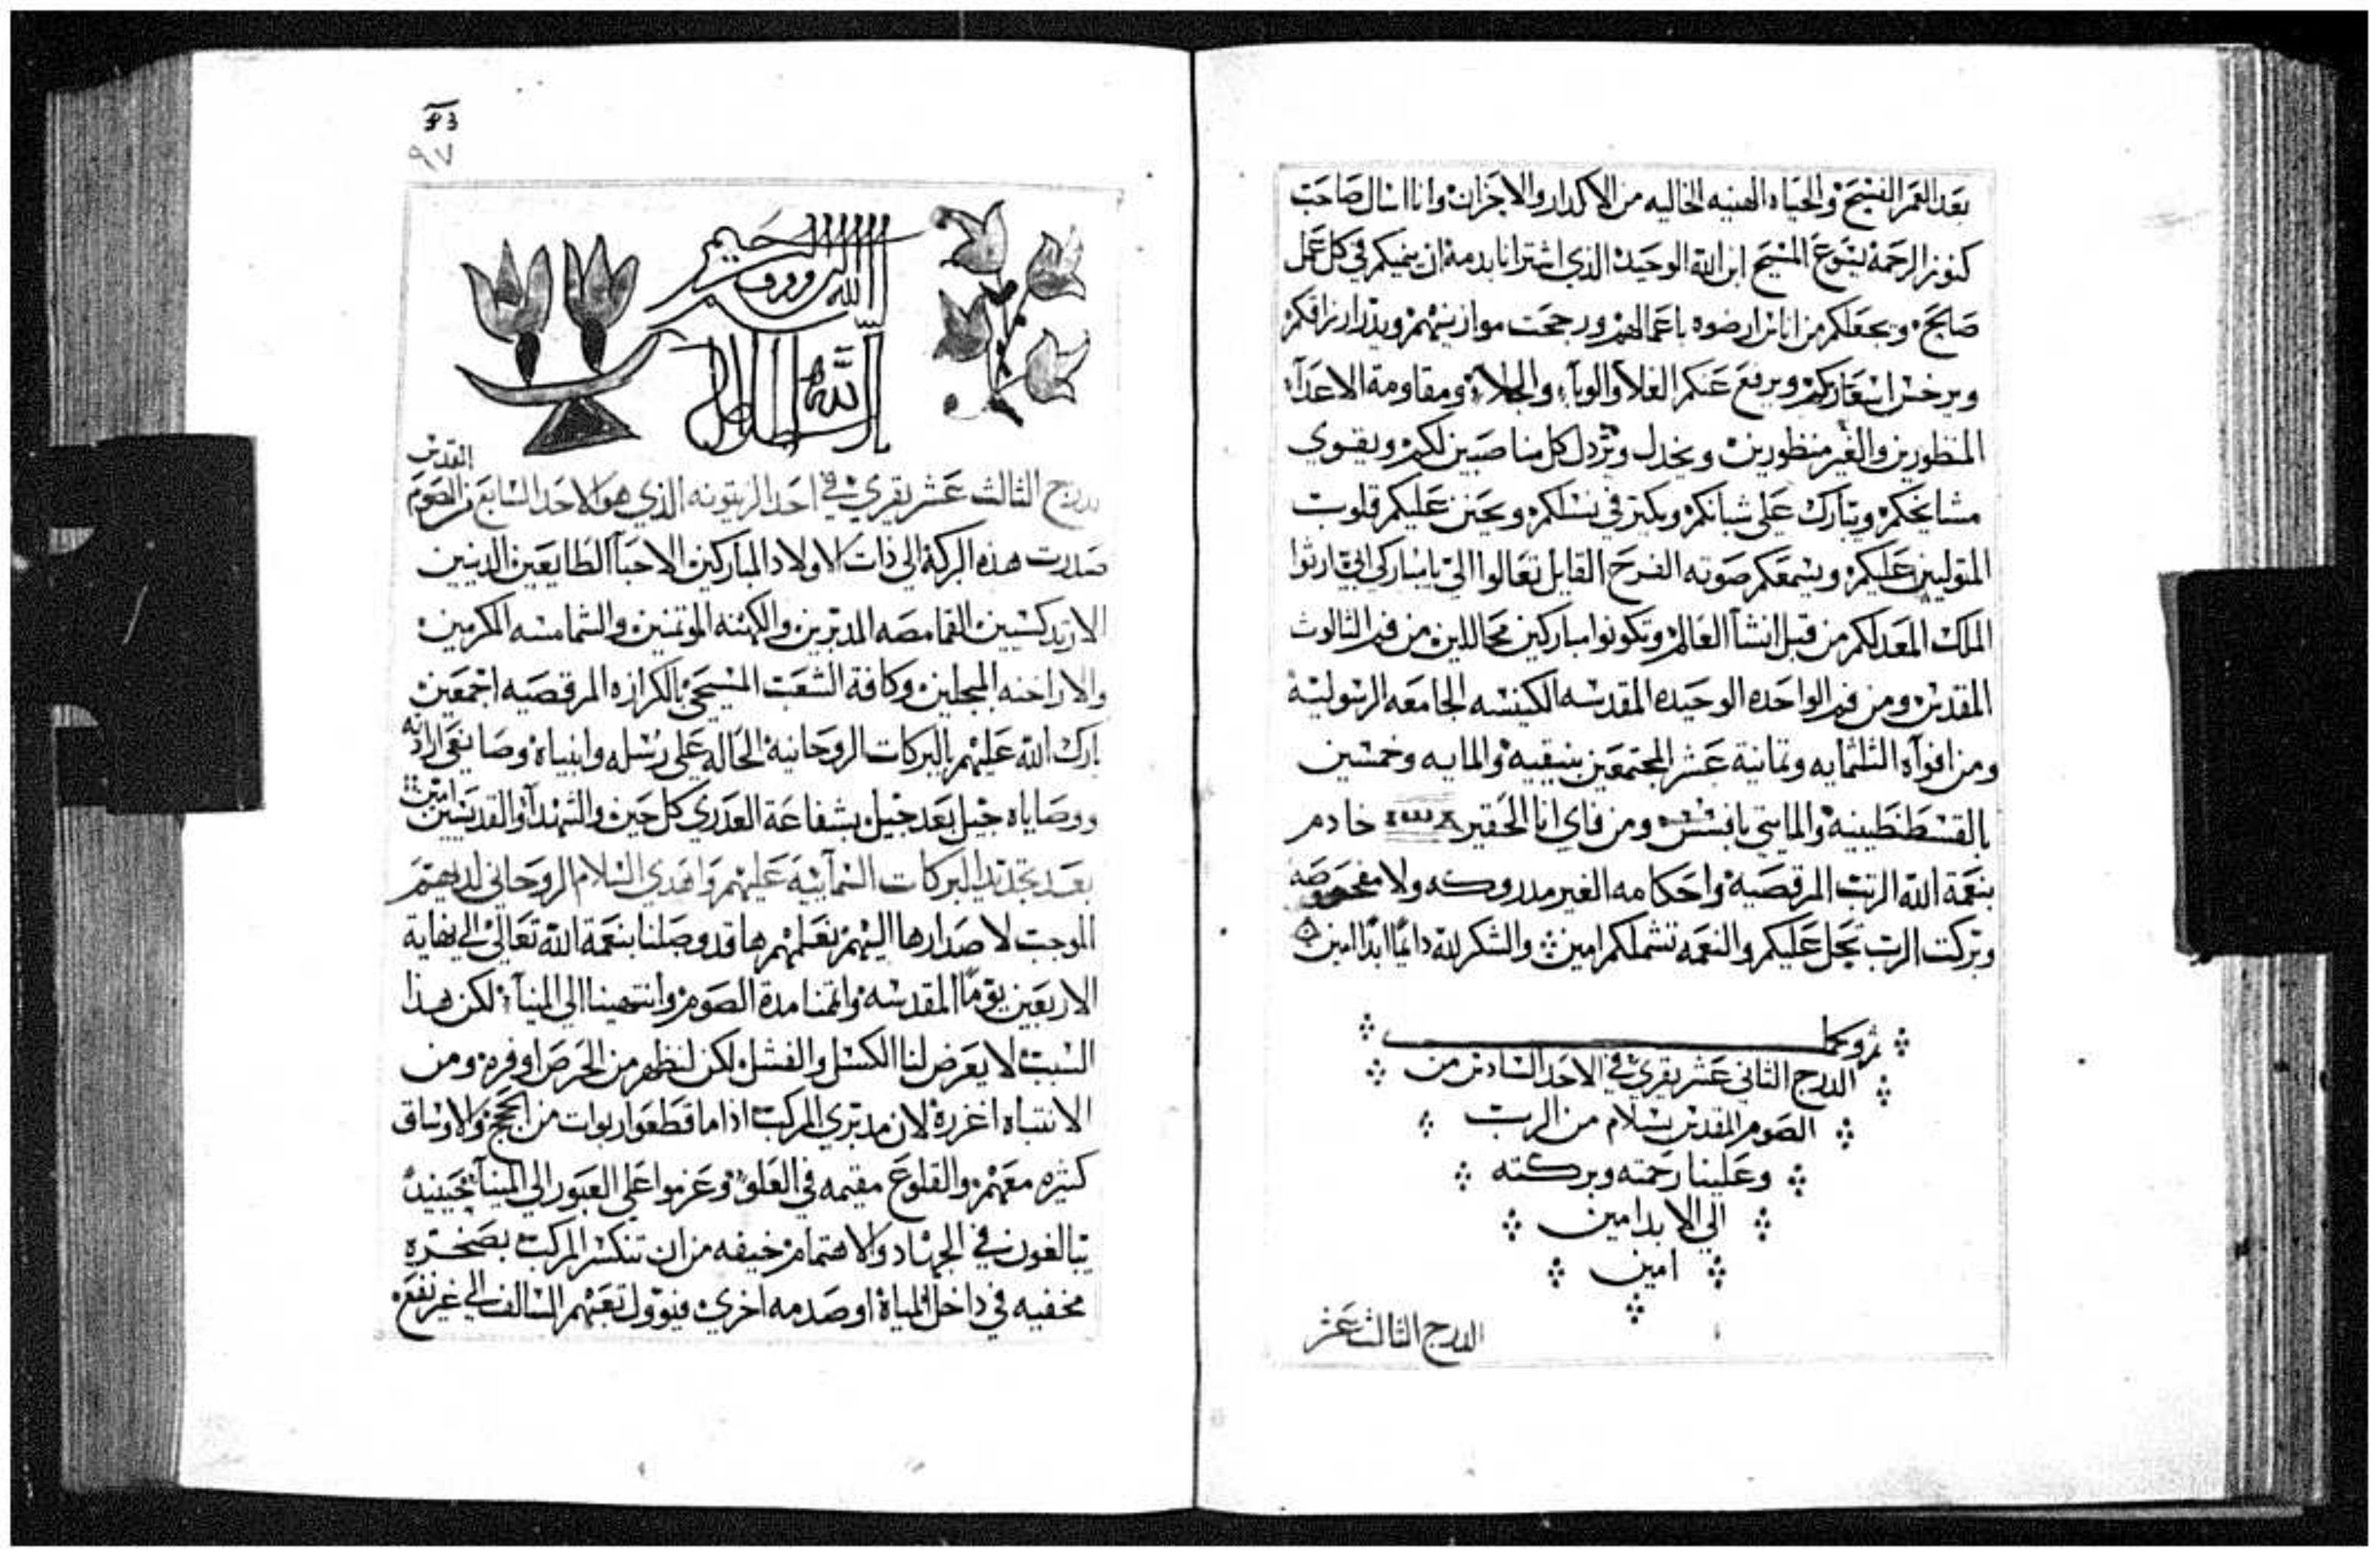 بعد العمر الفسيح والحياه الهنيه الخاليه من الاكدار والاحزان وانا اسال صاحب
كنوز الرحمة يسوع المسيح ابن الله الوحيد الذي اشترانا بدمه ان ينميكم في كل عمل
صالح ويجعلكم من اناس ارضوه باعمالهم ورجحت موازينهم ويدر ارزاقكم
ويرخس اسعاركم ويرفع عنكم الغلا والوبا والجلا ومقاومة الاعدآ
المنظورين والغير منظورين ويخدل ويردل كل مناصبين لكم ويقوي
مشايخكم ويبارك على شبانكم ويكتر في نسلكم ويحنن عليكم قلوب
المتوليين عليكم ويسمعكم صوته الفرح القايل تعالوا الي يا مباركي ابي ارثوا
الملك المعد لكم من قبل انشآ العالم وتكونوا مباركين محاللين من فم الثالوث
المقدس ومن فم الواحده الوحيده المقدسه الكنيسه الجامعه الرسولية
ومن افواه الثلثمايه وثمانية عشر المجتمعين بنيقيه والمايه وخمسين
بالقسطنطينية والمايتي بافسس ومن فاي انا الحقير خادم
بنعمة الله الرتب المرقصية واحكامه الغير مدروكه ولا مفحوصه
وبركت الرب تحل عليكم والنعمه تشملكم امين والشكر لله دايمًا ابدًا امين
الدرج الثاني عشر يقري في الاحد السادس من
الصوم المقدس بسلام من الرب
وعلينا رحمته وبركته
الي الابد امين
امين
الدرج الثالث عشر
٩٧
الله الرووف الرحيم
الدرج الثالث عشر يقري في احد الزيتونه الذي هو الاحد السابع من الصوم المقدس
صدرت هذه البركة الى ذات الاولاد المباركين الاحبآ الطايعين الدينين
الارتدكسيين القمامصه المدبرين والكهنه الموتمنين والشمامسه المكرمين
والاراخنه المبجلين وكافة الشعب المسيحي بالكرازه المرقصيه اجمعين
بارك الله عليهم بالبركات الروحانية الحاله على رسله وانبياه وصانعي ارادته
ووصاياه جيل بعد جيل بشفاعة العدري كل حين والشهدآ والقديسين امين
بعد تجديد البركات السمآييه عليهم واهدي السلام الروحاني لديهم
الموجب لاصدارها اليهم نعلمهم ها قد وصلنا بنعمة الله تعالى الي نهاية
الاربعين يومًا المقدسه واتممنا مدة الصوم وانتهينا الي المينآ لكن هذا
السبب لا يعرض لنا الكسل والفشل لكن لنظهر من الحرص اوفره ومن
الانتباه اغزره لان مدبري المركب اذا ما قطعوا ربوات من اللجج والاوساق
كثيره معهم والقلوع مقيمه في العلو وعزموا على العبور الى المينآ فحينيد
يبالغون في الجهاد والاهتمام خيفه من ان تنكسر المركب بصخره
مخفيه في داخل المياه او صدمه اخري فيوول تعبهم السالف الي غير نفع